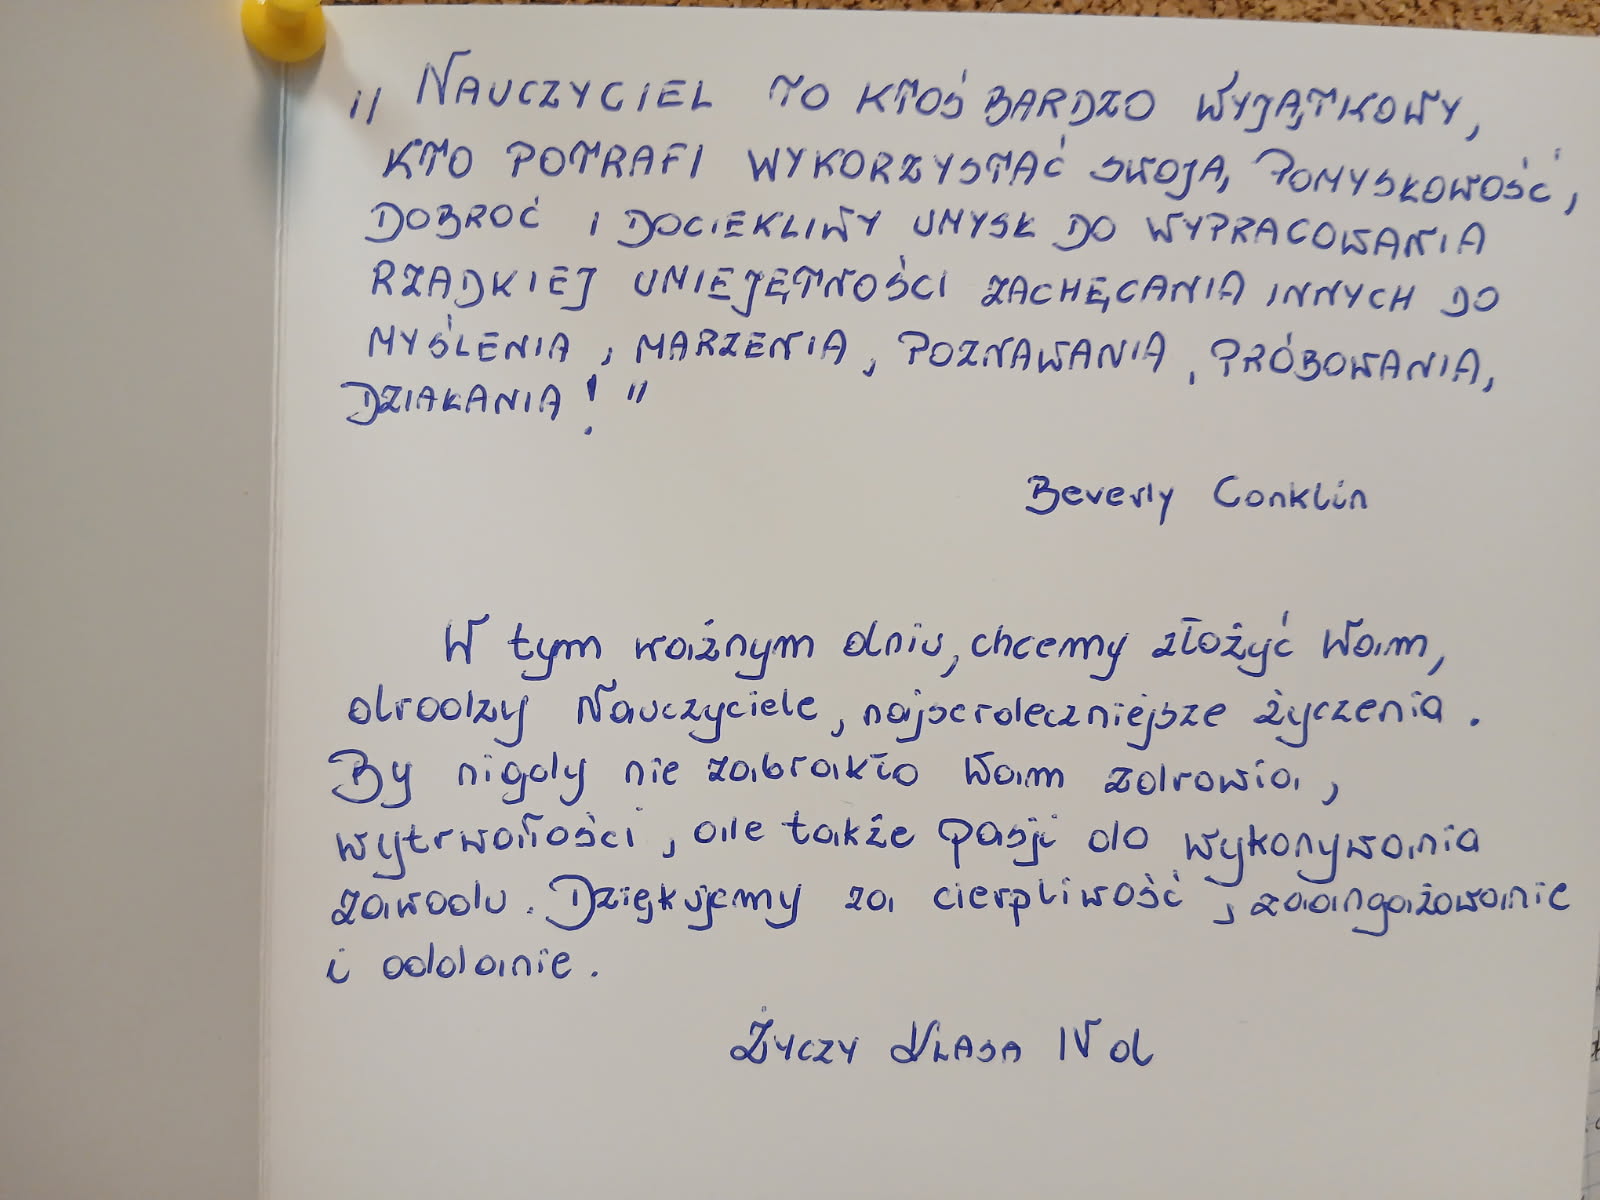 „NAUCZYCIEL TO KTOŚ BARDZO WYJĄTKOWY,
KTO POTRAFI WYKORZYSTAĆ SWOJĄ POMYSŁOWOŚĆ,
DOBROĆ I DOCIEKLIWY UMYSŁ DO WYPRACOWANIA
RZADKIEJ UMIEJĘTNOŚCI ZACHĘCANIA INNYCH DO
MYŚLENIA, MARZENIA, POZNAWANIA, PRÓBOWANIA,
DZIAŁANIA!"
Beverly Conklin
W tym ważnym dniu, chcemy złożyć Wam,
drodzy Nauczyciele, najserdeczniejsze życzenia.
By nigdy nie zabrakło Wam zdrowia,
wytrwałości, ale także pasji do wykonywania
zawodu. Dziękujemy za cierpliwość, zaangażowanie
i oddanie.
ŻYCZY KLASA IV d